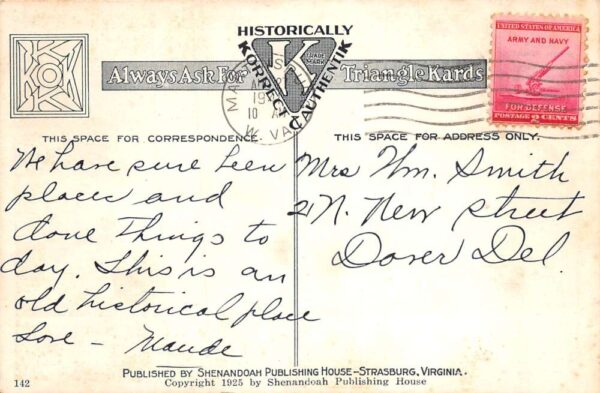 HISTORICALLY
KORRECT
AUTHENTIK
K
TRADE MARK
KKKK
UNITED STATES OF AMERICA
ARMY AND NAVY
FOR DEFENSE
POSTAGE 2 CENTS
Always Ask For Triangle Kards
W. VA.
THIS SPACE FOR CORRESPONDENCE.
THIS SPACE FOR ADDRESS ONLY.
We have sure been
places and
done things to
day. This is an
old historical place
Love - Maude
Mrs Wm. Smith
21 N. New Street
Dover Del.
PUBLISHED BY SHENANDOAH PUBLISHING HOUSE-STRASBURG, VIRGINIA.
142
Copyright 1925 by Shenandoah Publishing House